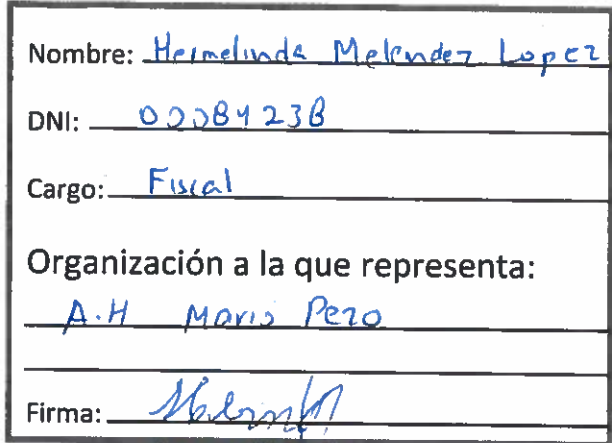 Nombre: Hermelinda Melendez Lopez
DNI: 00084238
Cargo: Fiscal
Organización a la que representa:
A.H Mario Pezo
Firma: